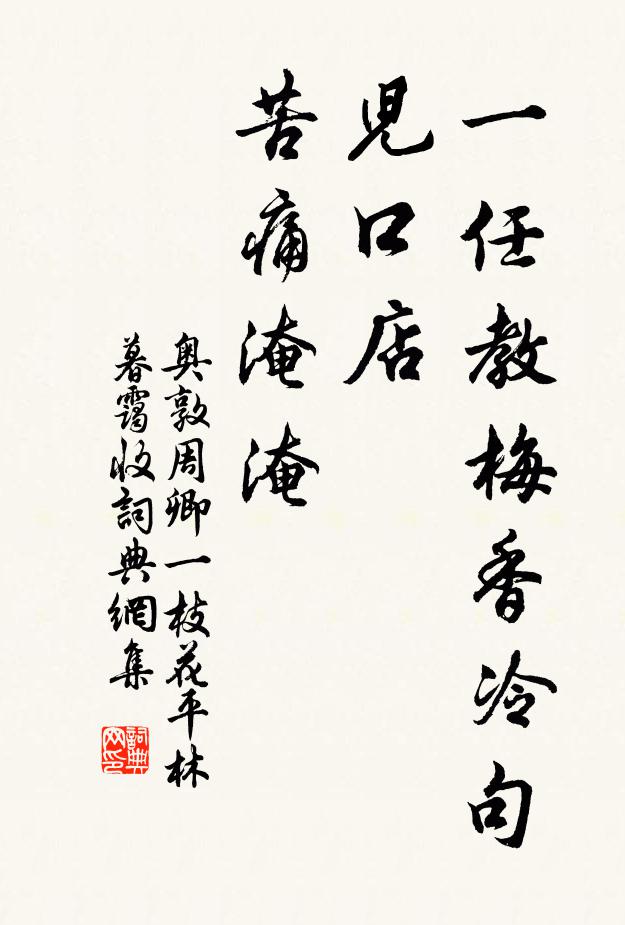 一任教梅香冷句
児口店
苦痛淹淹
奥敦周卿一枝花平林
暮靄收詞典網集
詞典
网印